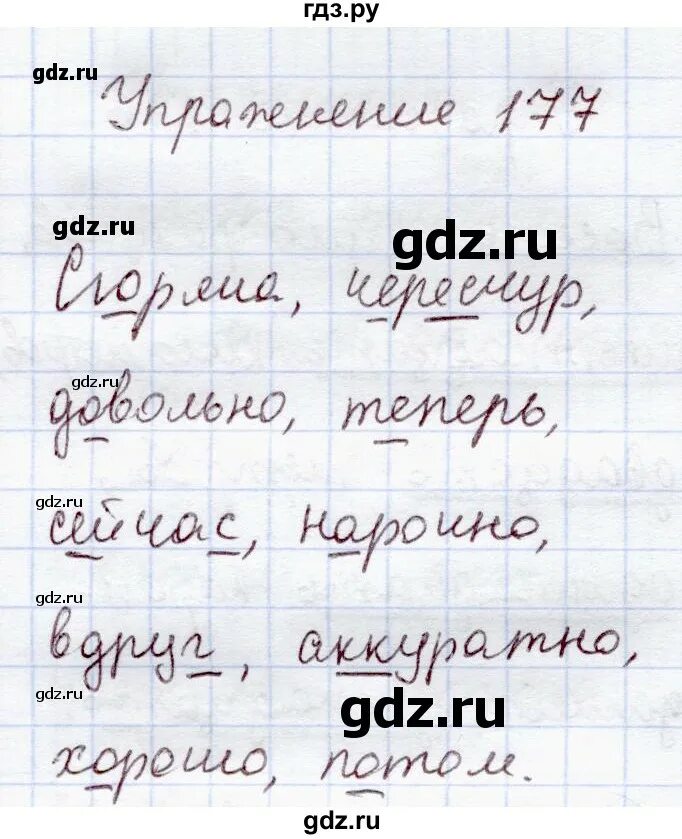 гдз.ру
gdz.ru
Упражнение 177
gdz.ru
gdz.ru
Сгоряча, чересчур,
gdz.ru
довольно, теперь,
gdz.ru
сейчас, нарочно,
gdz.ru
вдруг, аккуратно,
gdz.ru
gdz.ru
хорошо, потом.
gdz.ru